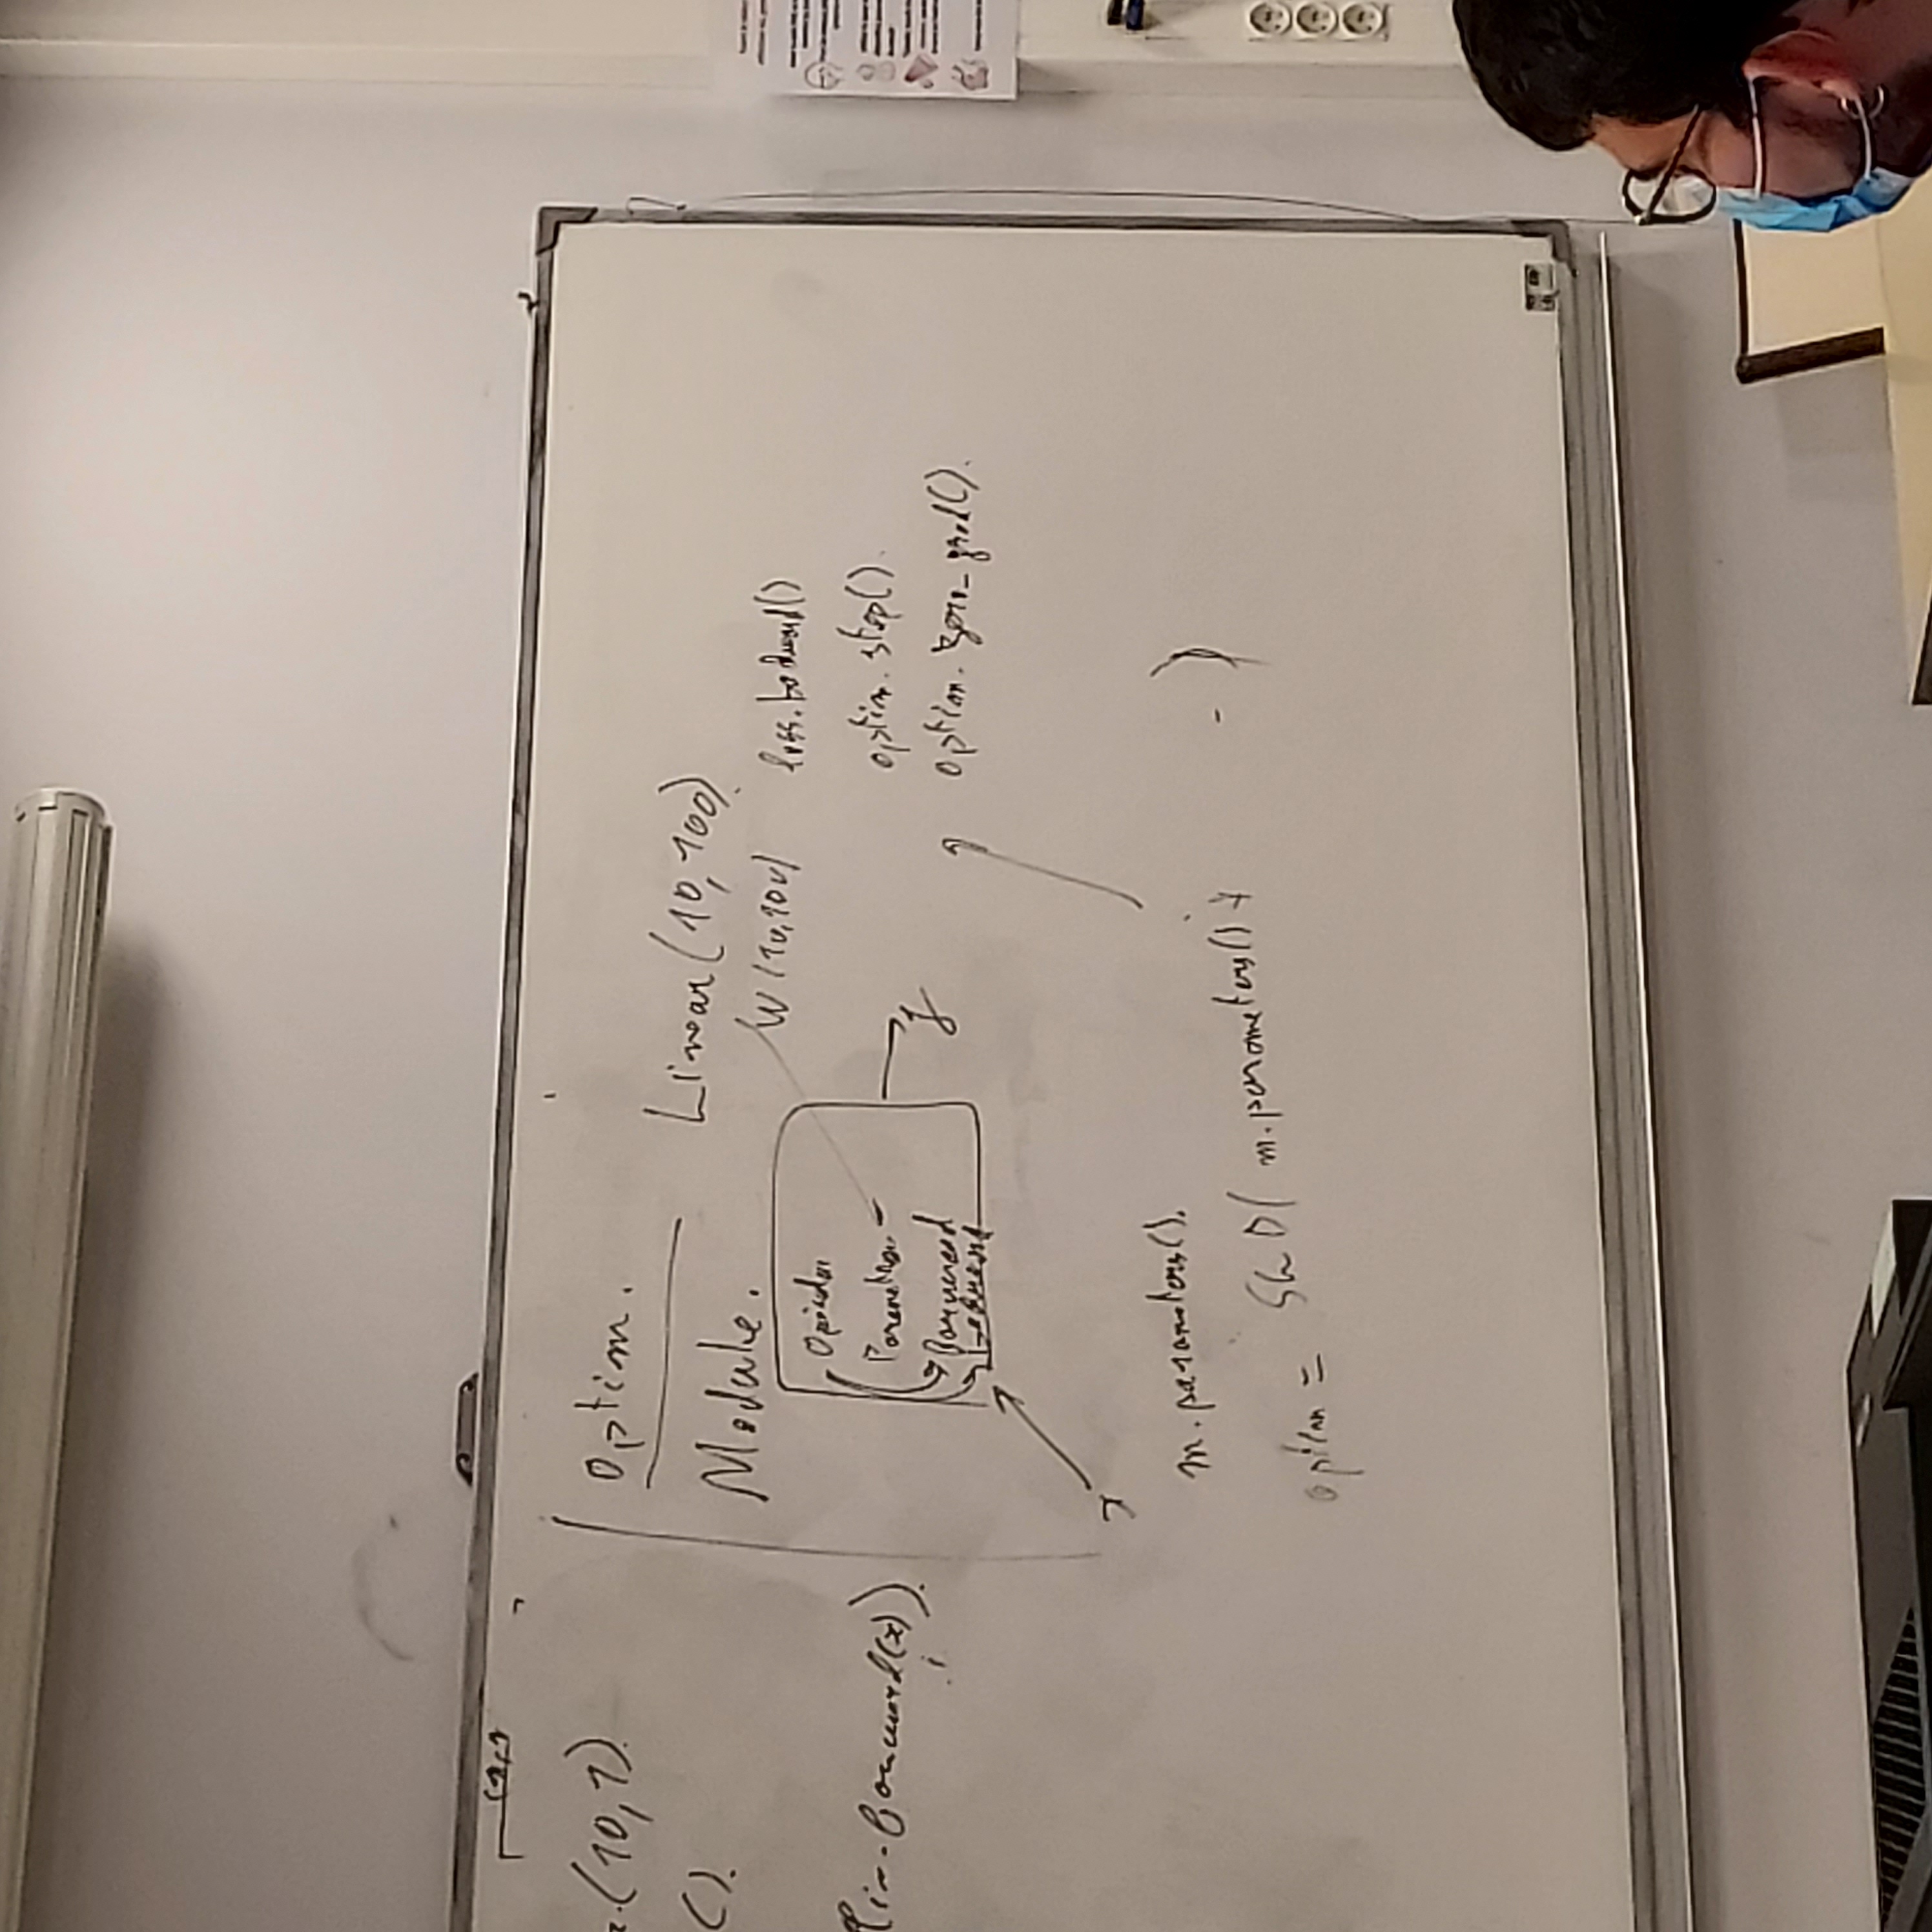 (10,1).
().
lin.forward(x)).
Optim.
Module.
Linear(10,100).
W(10,100)
Parameters
Forward
Backward
x
y
loss.backward()
optim.step().
optim.zero_grad().
m.parameters().
optim = SGD( m.parameters() + - )